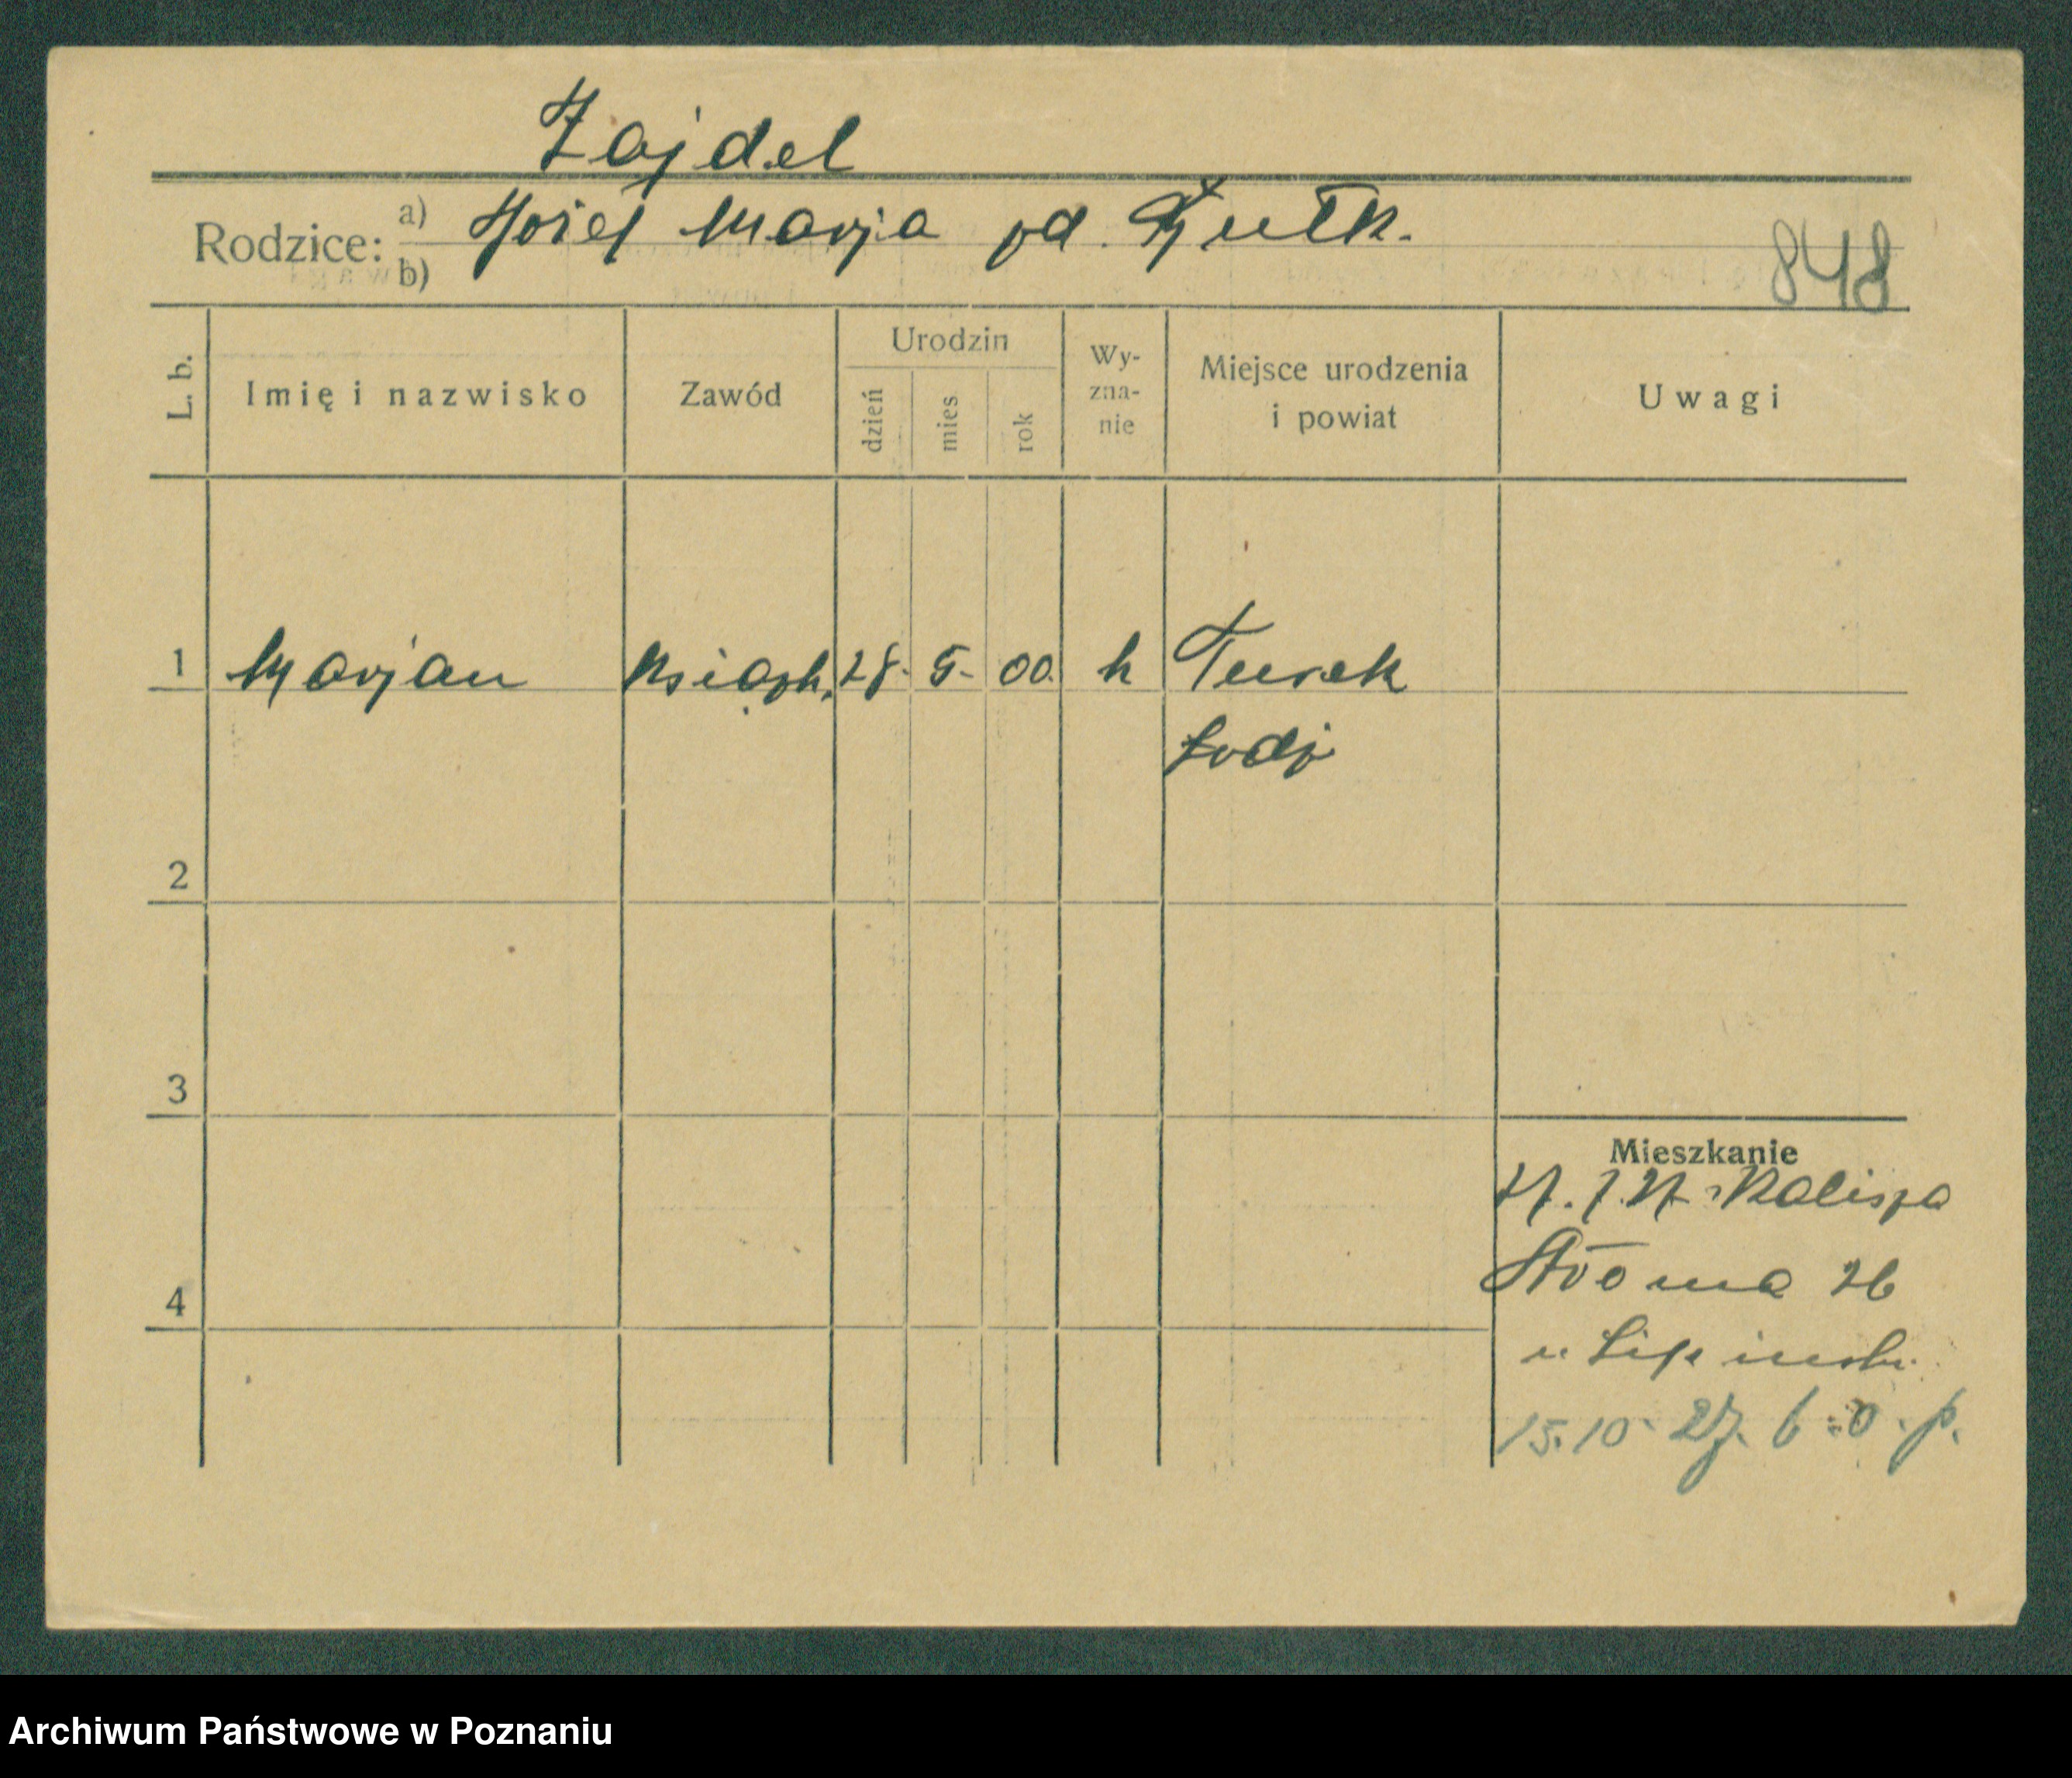 Zajdel
Rodzice: a) Józef Marja zd.
b)
848
L. b.
Imię i nazwisko
Zawód
Urodzin
dzień
mies
rok
Wy-
zna-
nie
Miejsce urodzenia
i powiat
Uwagi
1 Marjan 28. 5. 00. k Turek
Łódź
2
3
Mieszkanie
Kalisza
4
26
u
15.10. 27. p.
Archiwum Państwowe w Poznaniu